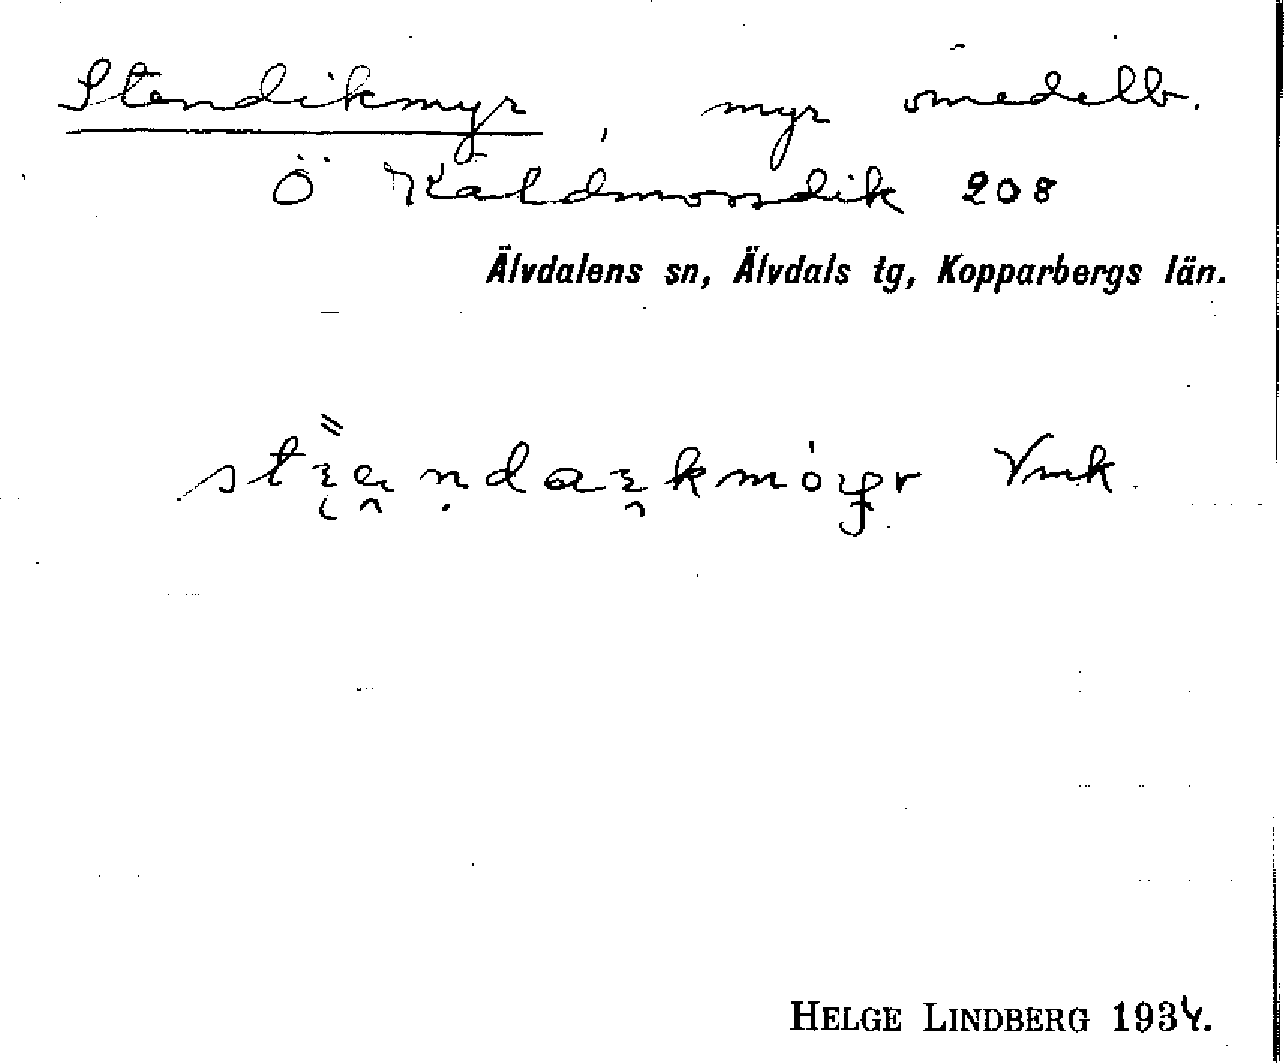 Stendikmyr, myr omedelb.
Ö Kaldmossdik 208
Älvdalens sn, Älvdals tg, Kopparbergs län.
Vmk
HELGE LINDBERG 1934.